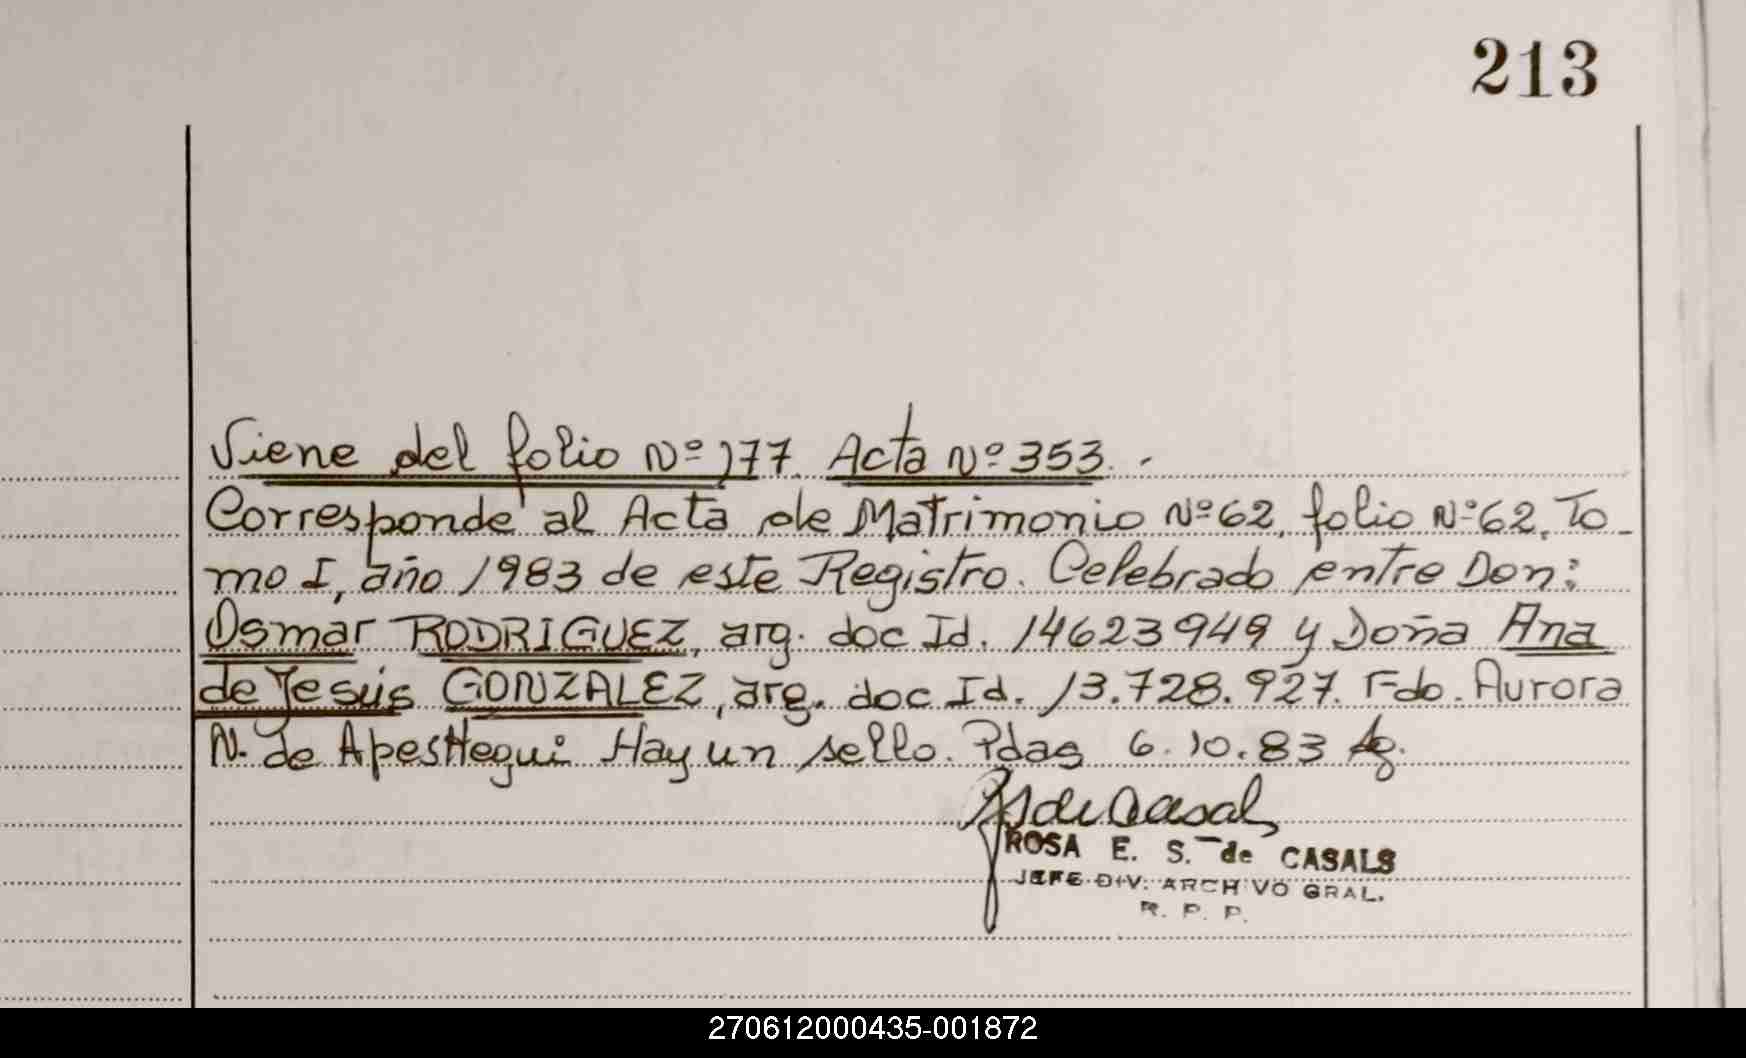 213
Viene del folio Nº 177. Acta Nº 353. -
Corresponde al Acta de Matrimonio Nº 62, folio Nº 62, To-
mo I, año 1983 de este Registro. Celebrado entre Don:
Osmar RODRIGUEZ, arg. doc Id. 14623949 y Doña Ana
de Jesús GONZALEZ, arg. doc Id. 13.728.927. Fdo. Aurora
N. de Apesttegui Hay un sello. Pdas 6.10.83
ROSA E. S. de CASALS
JEFE DIV. ARCHIVO GRAL.
R. P. P.
270612000435-001872